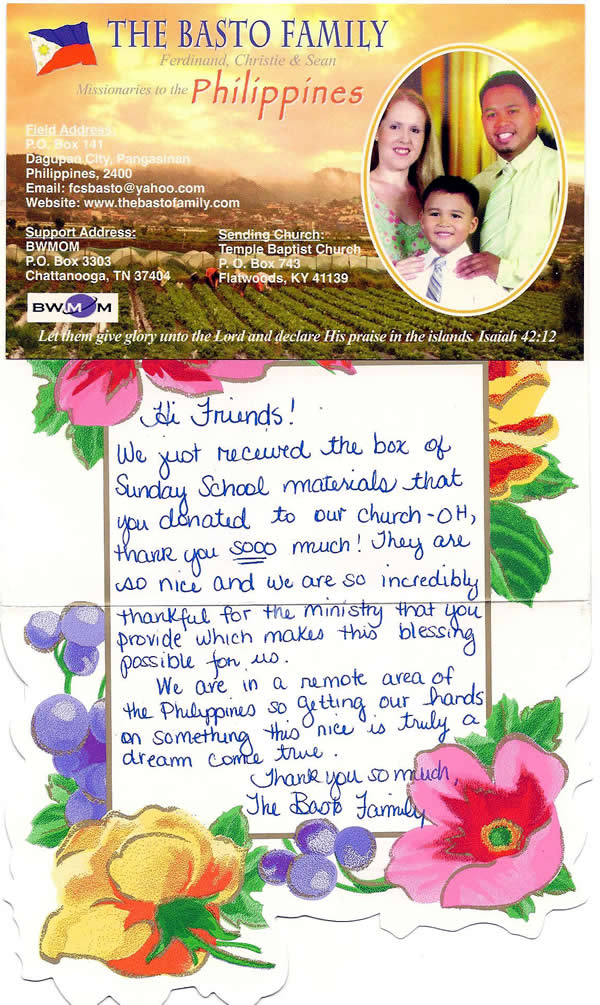 THE BASTO FAMILY
Ferdinand, Christie & Sean
Missionaries to the Philippines
Field Address:
P.O. Box 141
Dagupan City, Pangasinan
Philippines, 2400
Email: fcsbasto@yahoo.com
Website: www.thebastofamily.com
Support Address:
BWMOM
P.O. Box 3303
Chattanooga, TN 37404
Sending Church:
Temple Baptist Church
P.O. Box 743
Flatwoods, KY 41139
BWMOM
Let them give glory unto the Lord and declare His praise in the islands. Isaiah 42:12
Hi Friends!
We just received the box of
Sunday School materials that
you donated to our church - OH,
thank you sooo much! They are
so nice and we are so incredibly
thankful for the ministry that you
provide which makes this blessing
possible for us.
We are in a remote area of
the Philippines so getting our hands
on something this nice is truly a
dream come true.
Thank you so much,
The Basto Family